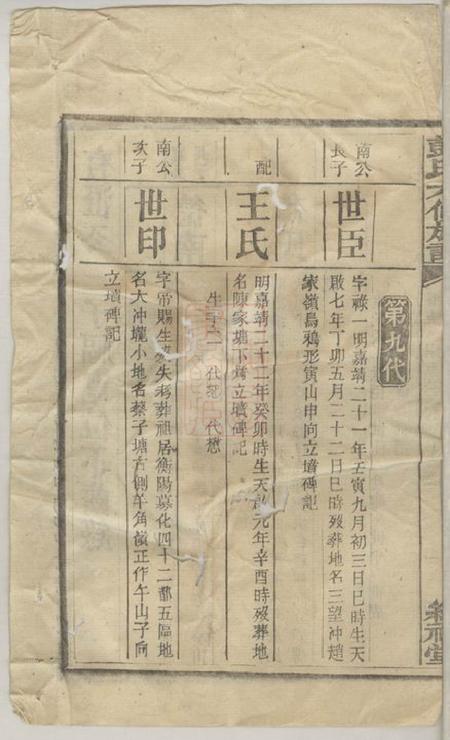 第九代
南公
長子
世臣
字祿一明嘉靖二十一年壬寅九月初三日巳時生天
啟七年丁卯五月二十二日巳時歿葬地名三望冲趙
家嶺烏鴉形寅山申向立墳碑記
配
王氏
明嘉靖二十二年癸卯時生天啟元年辛酉時歿葬地
名陳家塘下立墳碑記
生子二 代記 代懋
南公
次子
世印
字帝賜生歿失考葬祖居衡陽慕化四十二都五區地
名大冲壠小地名蔡子塘右側羊角嶺正作午山子向
立墳碑記